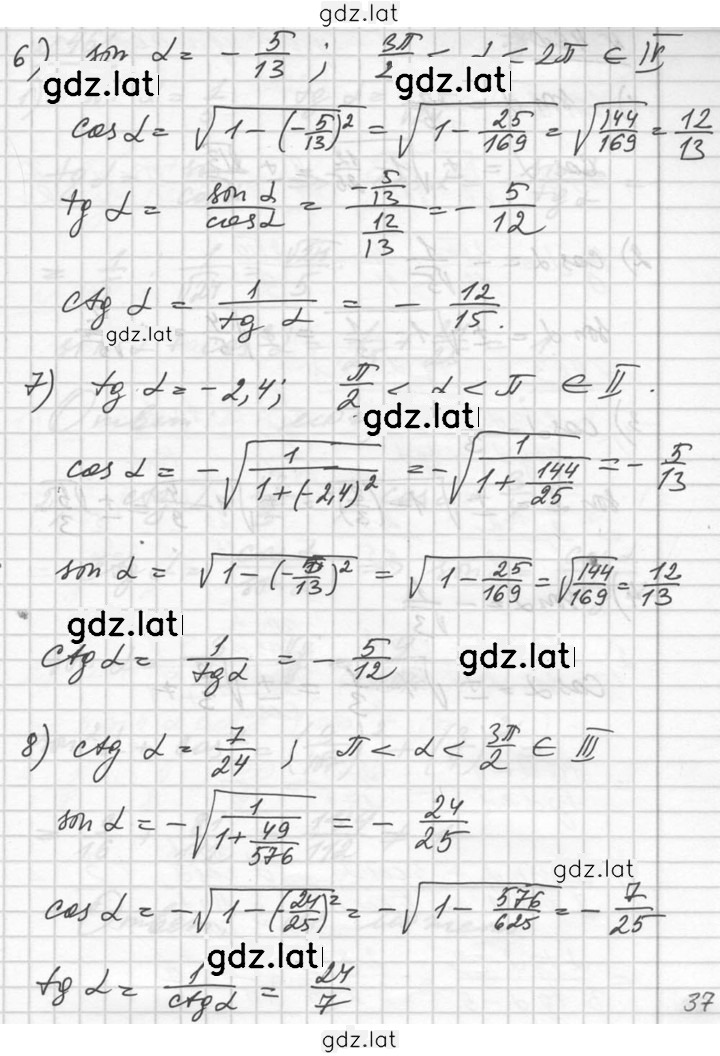 gdz.lat
6) sin α = - 5/13 ; 3π/2 < α < 2π ∈ IV
gdz.lat gdz.lat
cos α = √(1 - (-5/13)²) = √(1 - 25/169) = √(144/169) = 12/13
tg α = sin α/cos α = (-5/13)/(12/13) = - 5/12
ctg α = 1/tg α = - 12/15.
gdz.lat
7) tg α = -2,4; π/2 < α < π ∈ II.
gdz.lat
cos α = -√(1/(1+(-2,4)²)) = -√(1/(1+144/25)) = - 5/13
sin α = √(1 - (-5/13)²) = √(1 - 25/169) = √(144/169) = 12/13
gdz.lat
ctg α = 1/tg α = - 5/12 gdz.lat
8) ctg α = 7/24 ; π < α < 3π/2 ∈ III
sin α = -√(1/(1+49/576)) = - 24/25
gdz.lat
cos α = -√(1 - (24/25)²) = -√(1 - 576/625) = - 7/25
gdz.lat gdz.lat
tg α = 1/ctg α = 24/7
37
gdz.lat